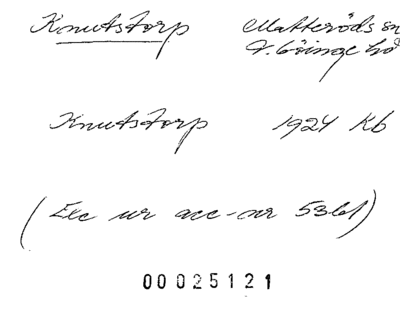 Knutstorp Matteröds sn
V. Göinge hd
Knutstorp 1924 Kb
(Exc ur acc-nr 5361)
00025121